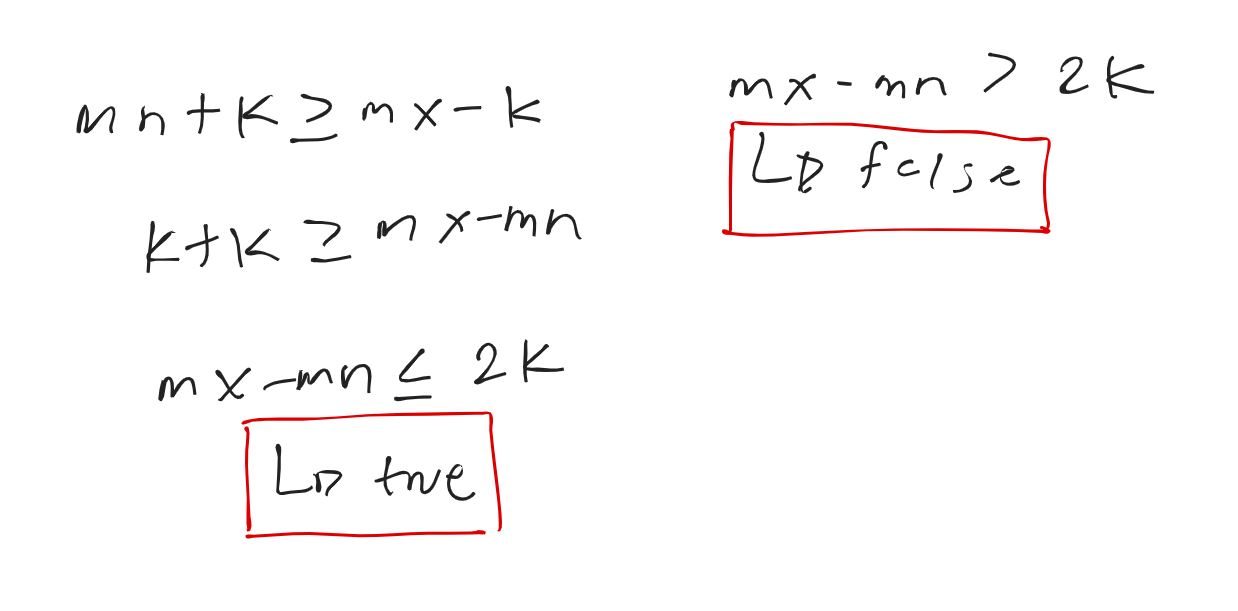 mn+k ≥ mx-k
k+k ≥ mx-mn
mx-mn ≤ 2k
↳ true
mx-mn > 2k
↳ false